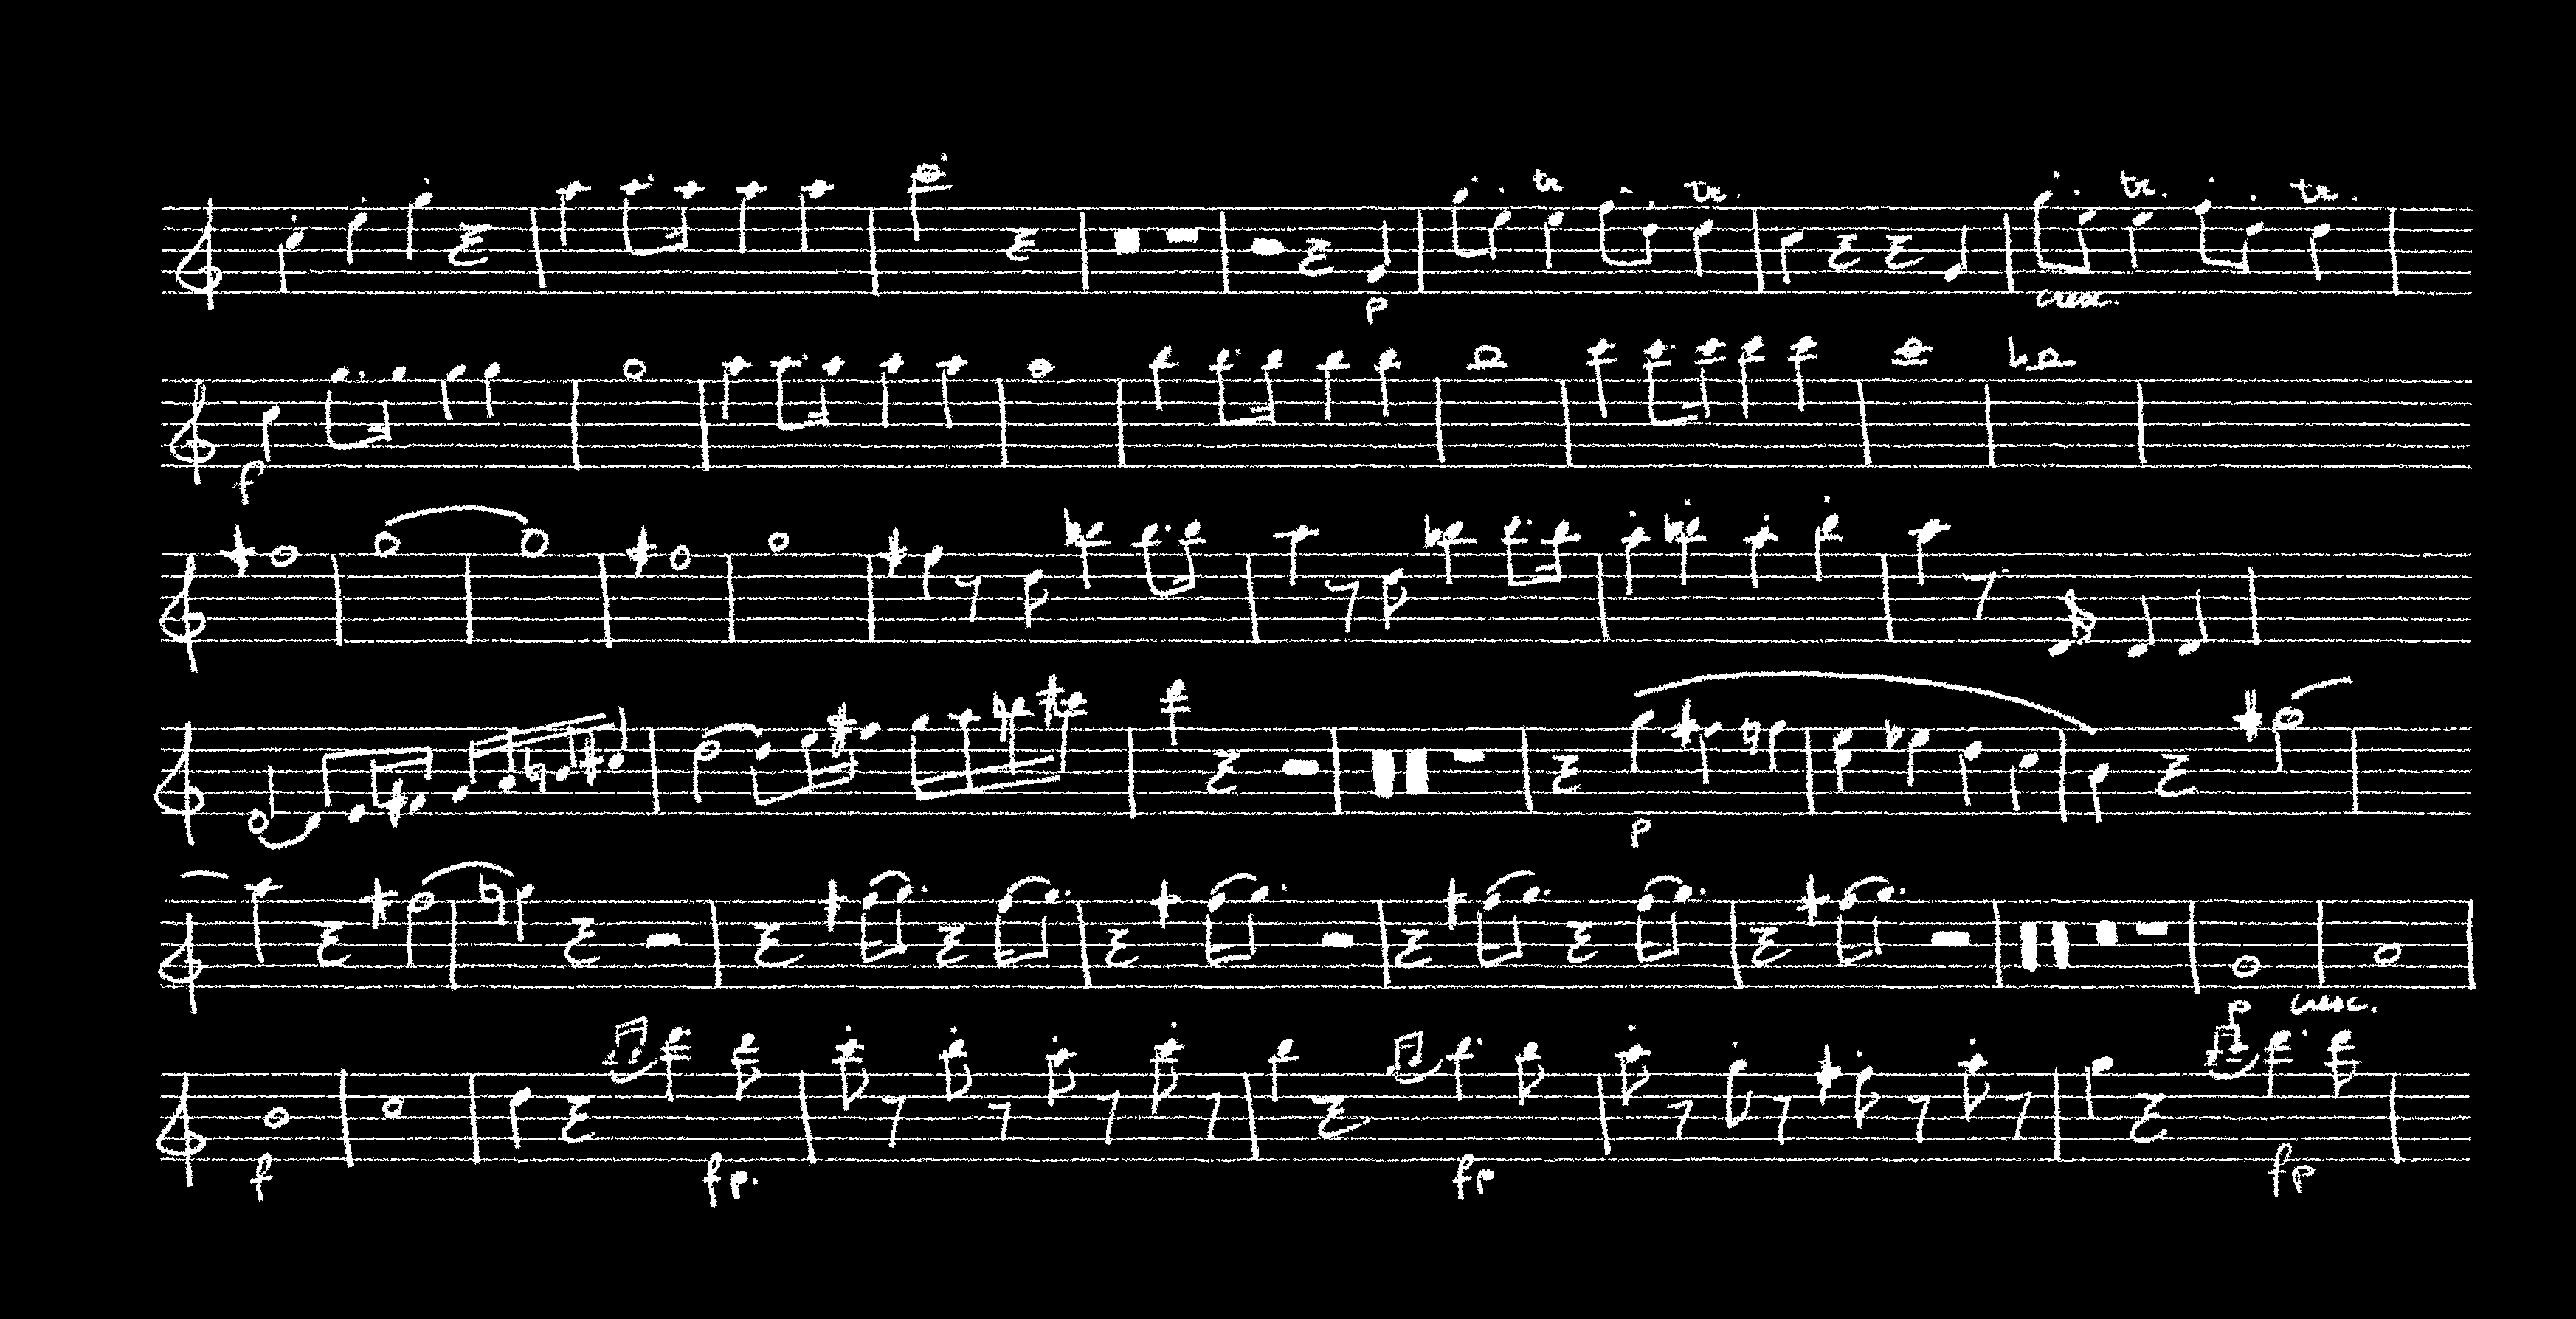 tr tr.
p
tr. tr.
cresc.
f
p
p cresc.
f fp. fp fp